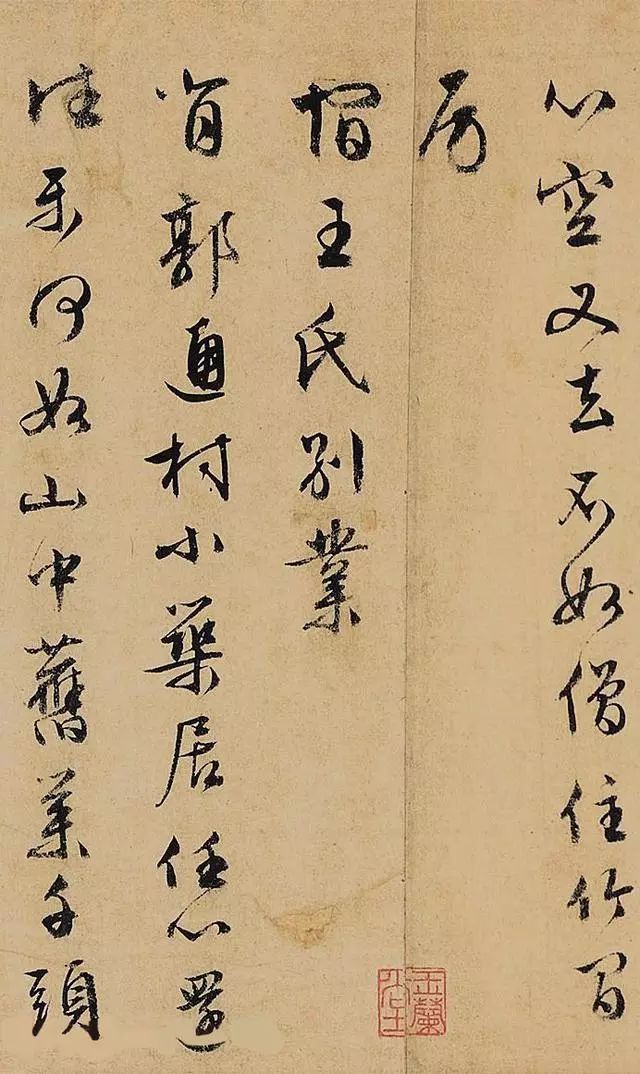 心空又去不如僧住竹間
房
王氏別業
背郭通村小築居任心還
往樂何如山中舊業千頭